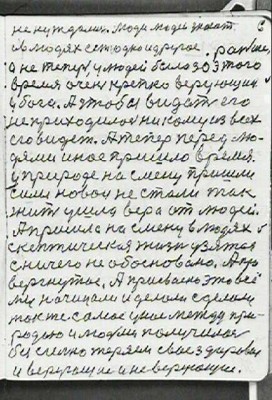 не нуждались. Люди людей знают. 6
в людях есть одно и другое, раньше
а не теперь, у людей было до этого
время очень крепко верующих
у бога. А чтобы видать его
не приходилося никому из всех
его видеть. А теперь перед лю-
дями иное пришло время
у природе на смену пришли
сили новои не стали так
жить ушла вера от людей.
А пришла на смену в людях
скептическая жизнь узятая
с ничего не обосновано. А
вернутое. А при всьом этом всё
ми начинали и делали сделали
так же самое у ное между при-
родою и людми получилося
би силно теряем свое здоровья
и верующие и не верующие.